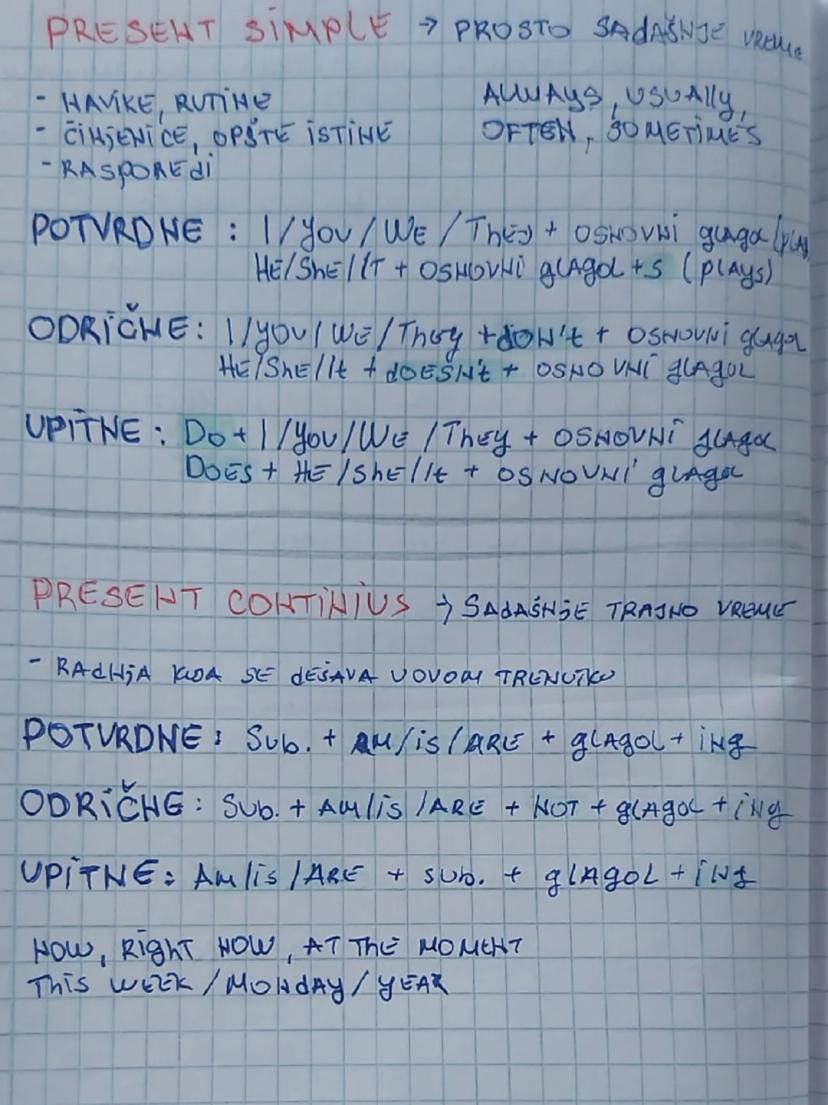 PRESENT SIMPLE → PROSTO SADAŠNJE VREME
- NAVIKE, RUTINE ALWAYS, USUALLY,
- ČINJENICE, OPŠTE ISTINE OFTEN, SOMETIMES
- RASPOREDI
POTVRDNE : I/YOU/WE/THEY + OSNOVNI GLAGOL (PLAY
HE/SHE/IT + OSNOVNI GLAGOL +S (PLAYS)
ODRIČNE: I/YOU/WE/THEY +DON'T + OSNOVNI GLAGOL
HE/SHE/It + DOESN't + OSNOVNI GLAGOL
UPITNE : DO + I/YOU/WE/THEY + OSNOVNI GLAGOL
DOES + HE/SHE/It + OSNOVNI GLAGOL
PRESENT CONTINIUS → SADAŠNJE TRAJNO VREME
- RADNJA KOJA SE DEŠAVA U OVOM TRENUTKU
POTVRDNE : SUB. + AM/IS/ARE + GLAGOL + ING
ODRIČNE : SUB. + AM/IS/ARE + NOT + GLAGOL + ING
UPITNE : AM/IS/ARE + SUB. + GLAGOL + ING
NOW, RIGHT NOW, AT THE MOMENT
THIS WEEK/MONDAY/YEAR